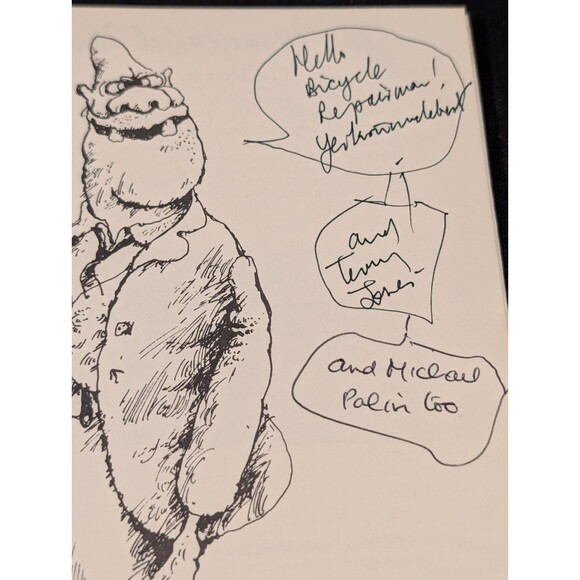 Hello
Bicycle
Repairman!
and
Terry
Jones.
and Michael
Palin too